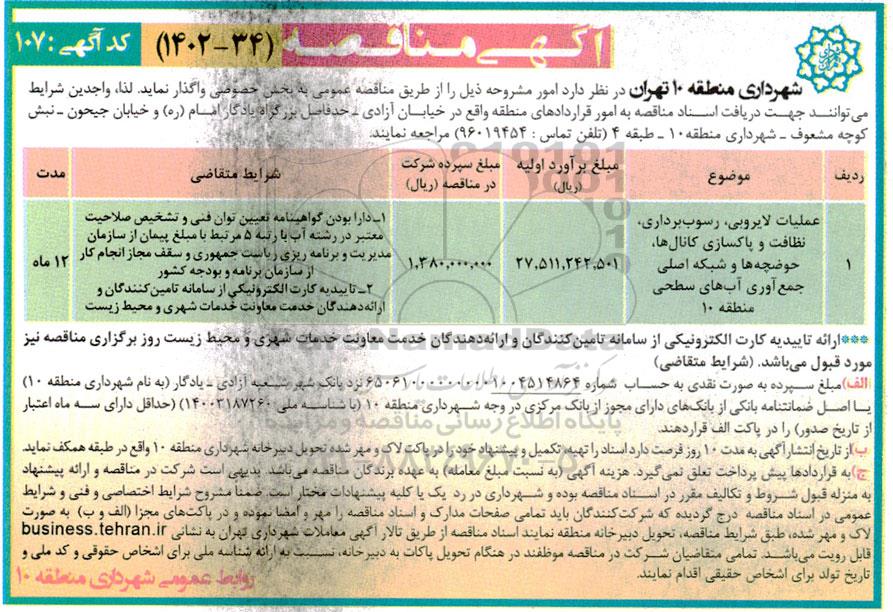 آگهی مناقصه
(۳۴-۱۴۰۲)
کد آگهی: ۱۰۷
شهرداری منطقه ۱۰ تهران در نظر دارد امور مشروحه ذیل را از طریق مناقصه عمومی به بخش خصوصی واگذار نماید. لذا، واجدین شرایط
می‌توانند جهت دریافت اسناد مناقصه به امور قراردادهای منطقه واقع در خیابان آزادی ـ حدفاصل بزرگراه یادگار امام (ره) و خیابان جیحون ـ نبش
کوچه مشعوف ـ شهرداری منطقه ۱۰ ـ طبقه ۴ (تلفن تماس : ۹۶۰۱۹۴۵۴) مراجعه نمایند.
ردیف
موضوع
مبلغ برآورد اولیه
(ریال)
مبلغ سپرده شرکت
در مناقصه (ریال)
شرایط متقاضی
مدت
۱
عملیات لایروبی، رسوب‌برداری،
نظافت و پاکسازی کانال‌ها،
حوضچه‌ها و شبکه اصلی
جمع‌آوری آب‌های سطحی
منطقه ۱۰
۲۷,۵۱۱,۲۴۲,۵۰۱
۱,۳۸۰,۰۰۰,۰۰۰
۱ـ دارا بودن گواهینامه تعیین توان فنی و تشخیص صلاحیت
معتبر در رشته آب با رتبه ۵ مرتبط با مبلغ پیمان از سازمان
مدیریت و برنامه ریزی ریاست جمهوری و سقف مجاز انجام کار
از سازمان برنامه و بودجه کشور
۲ـ تاییدیه کارت الکترونیکی از سامانه تامین‌کنندگان و
ارائه‌دهندگان خدمت معاونت خدمات شهری و محیط زیست
۱۲ ماه
***ارائه تاییدیه کارت الکترونیکی از سامانه تامین‌کنندگان و ارائه‌دهندگان خدمت معاونت خدمات شهری و محیط زیست روز برگزاری مناقصه نیز
مورد قبول می‌باشد. (شرایط متقاضی)
الف) مبلغ سپرده به صورت نقدی به حساب شماره نزد بانک شهر شعبه آزادی ـ یادگار (به نام شهرداری منطقه ۱۰)
یا اصل ضمانتنامه بانکی از بانک‌های دارای مجوز از بانک مرکزی در وجه شهرداری منطقه ۱۰ (با شناسه ملی ۱۴۰۰۳۱۸۷۲۶۰) (حداقل دارای سه ماه اعتبار
از تاریخ صدور) را در پاکت الف قراردهند.
ب) از تاریخ انتشار آگهی به مدت ۱۰ روز فرصت دارد اسناد را تهیه، تکمیل و پیشنهاد خود را در پاکت لاک و مهر شده تحویل دبیرخانه شهرداری منطقه ۱۰ واقع در طبقه همکف نماید.
ج) به قراردادها پیش پرداخت تعلق نمی‌گیرد. هزینه آگهی (به نسبت مبلغ معامله) به عهده برندگان مناقصه می‌باشد. بدیهی است شرکت در مناقصه و ارائه پیشنهاد
به منزله قبول شروط و تکالیف مقرر در اسناد مناقصه بوده و شهرداری در رد یک یا کلیه پیشنهادات مختار است. ضمنا مشروح شرایط اختصاصی و فنی و شرایط
عمومی در اسناد مناقصه درج گردیده که شرکت‌کنندگان باید تمامی صفحات مدارک و اسناد مناقصه را مهر و امضا نموده و در پاکت‌های مجزا (الف و ب) به صورت
لاک و مهر شده، طبق شرایط مناقصه، تحویل دبیرخانه منطقه نمایند اسناد مناقصه از طریق تالار آگهی معاملات شهرداری تهران به نشانی business.tehran.ir
قابل رویت می‌باشد. تمامی متقاضیان شرکت در مناقصه موظفند در هنگام تحویل پاکات به دبیرخانه، نسبت به ارائه شناسه ملی برای اشخاص حقوقی و کد ملی و
تاریخ تولد برای اشخاص حقیقی اقدام نمایند.
روابط عمومی شهرداری منطقه ۱۰